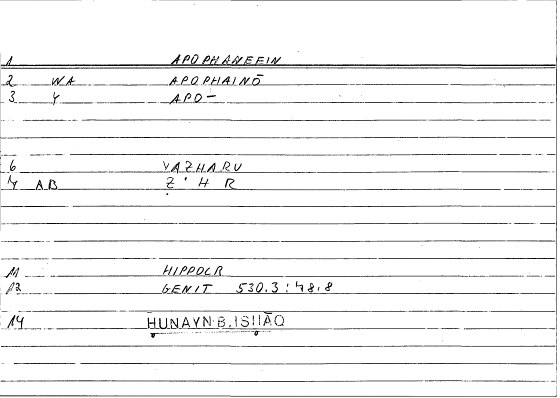 1 APOPHANEEIN
2 WA APOPHAINŌ
3 Y APO-
6 YAZHARU
7 AB Ẓ ' H R
11 HIPPOCR
12 GENIT 530.3 : 48.8
14 HUNAYN B. ISḤĀQ